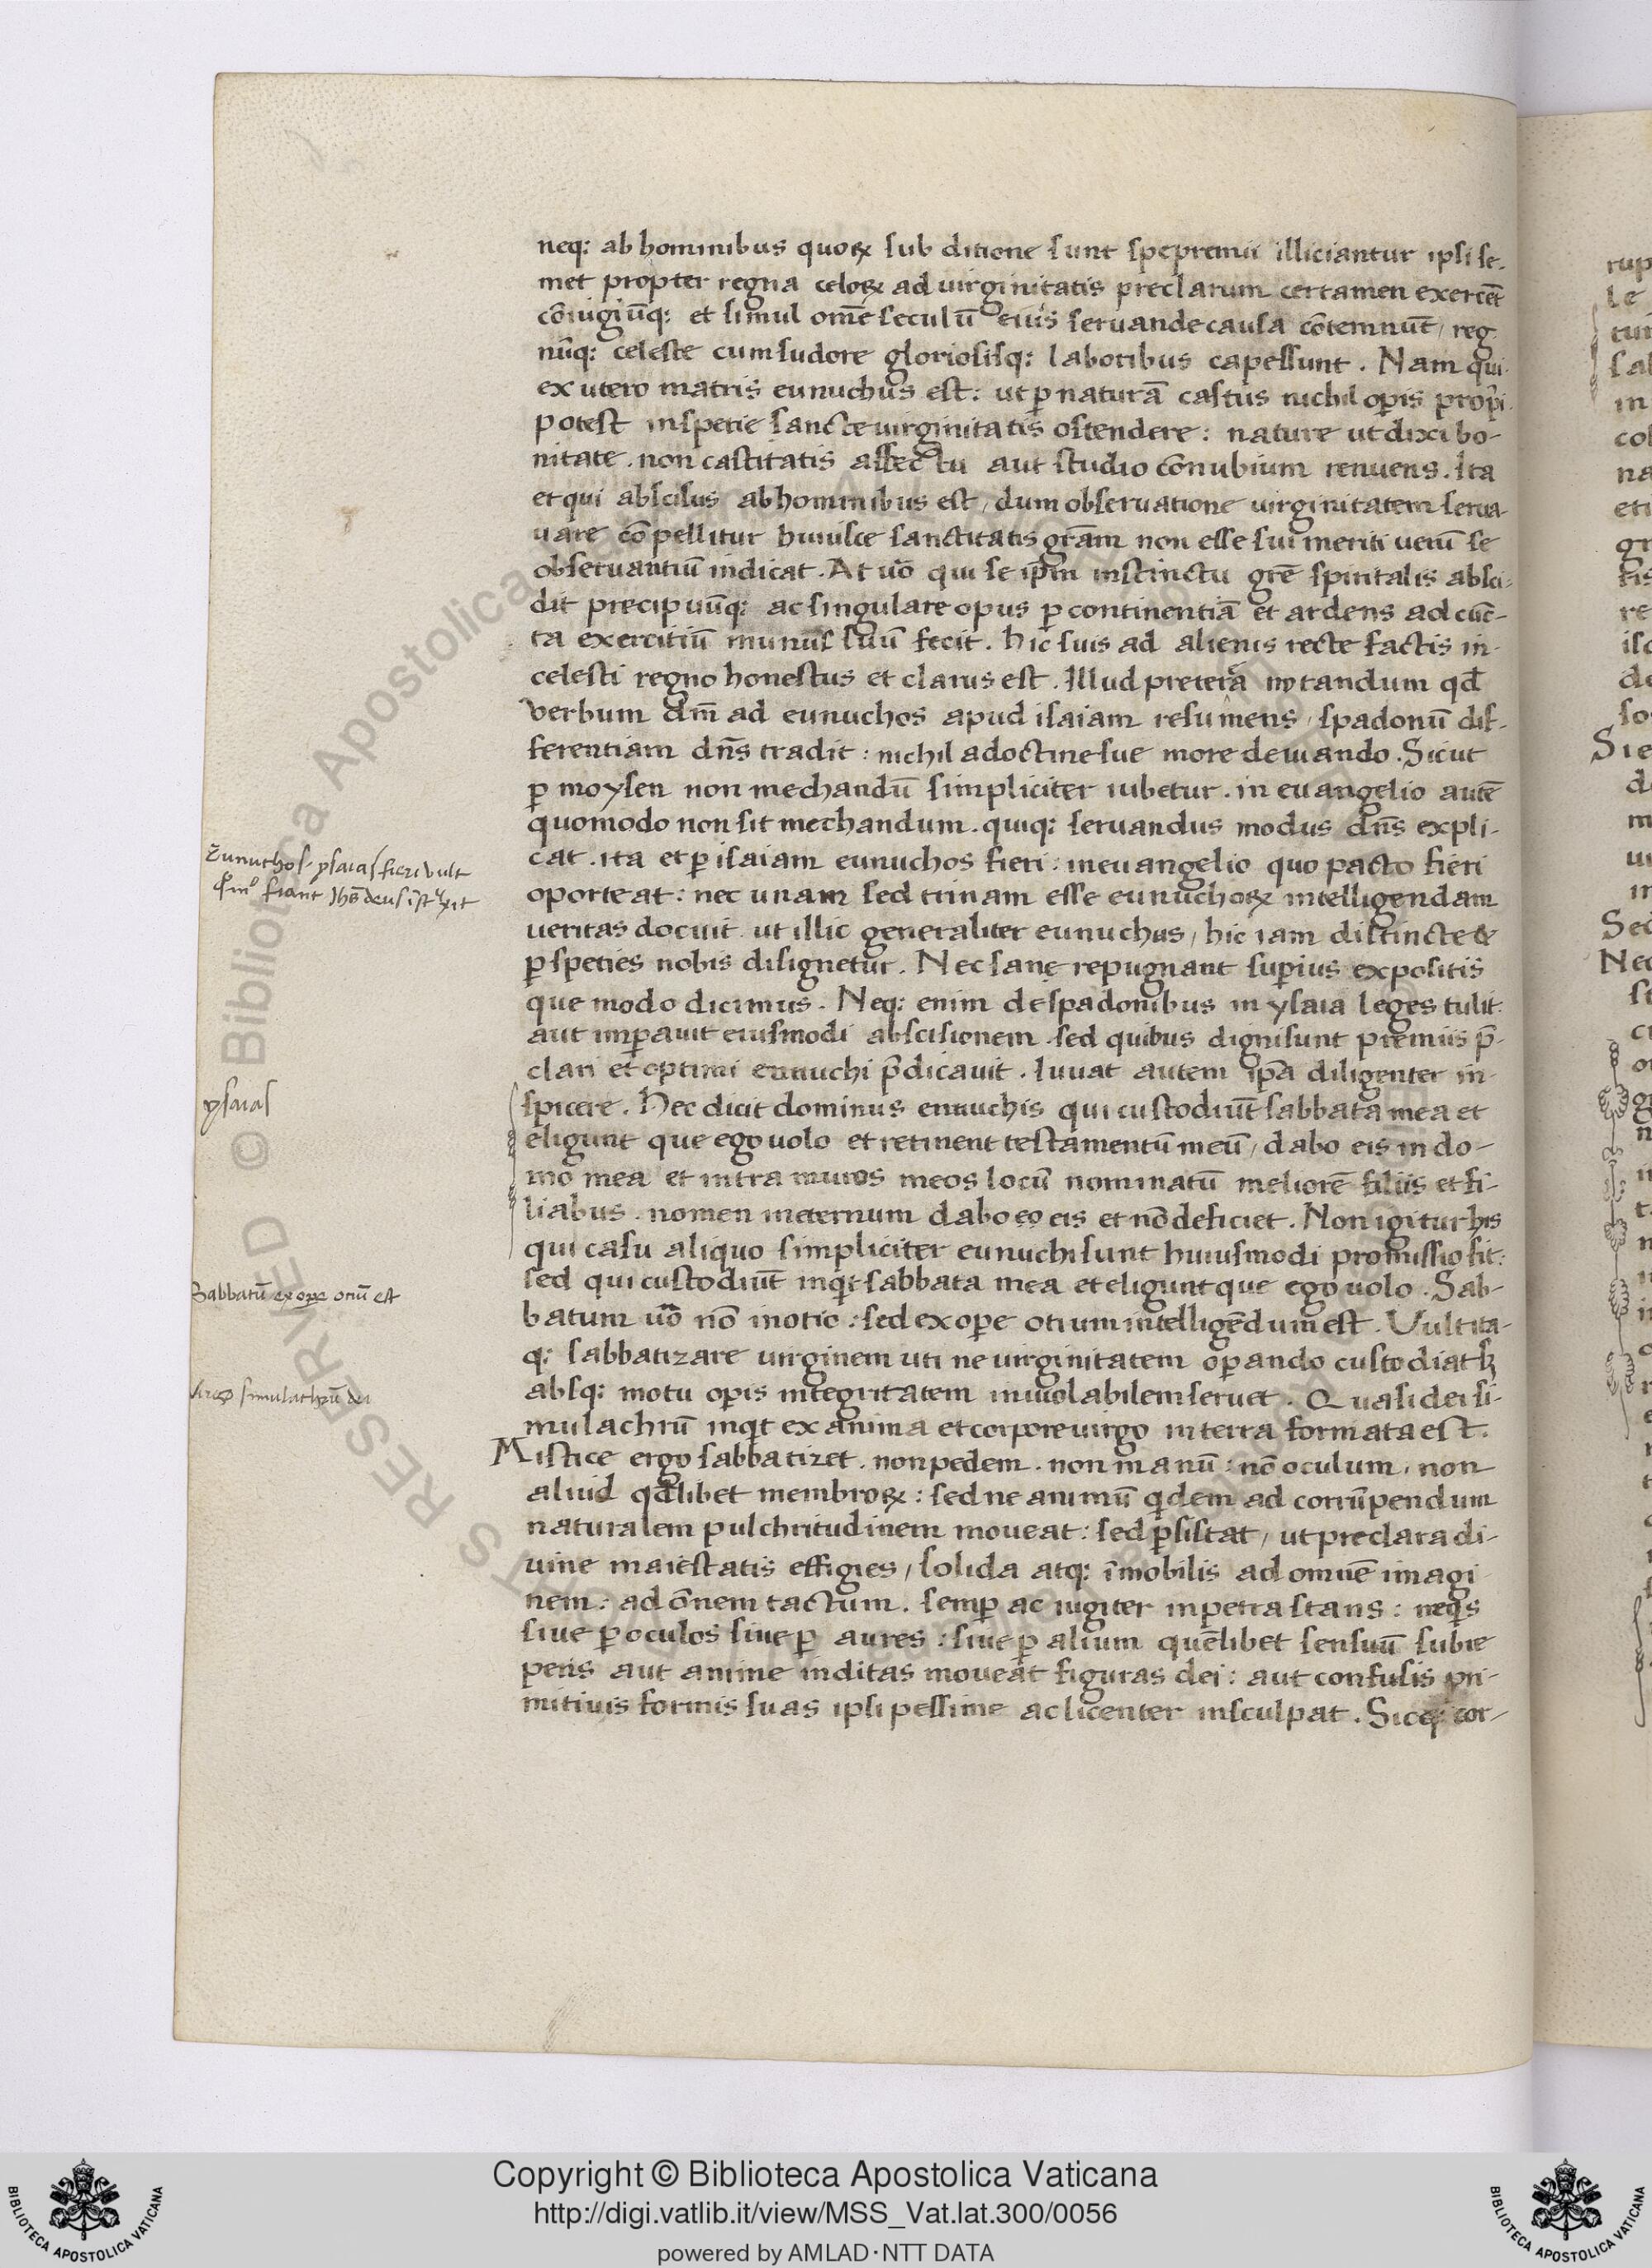 neq: ab hominibus quoꝝ sub ditione sunt spe premii illiciantur ipsi se-
met propter regna celoꝝ ad uirginitatis preclarum certamen exercēt
cōiugiūq: et simul omē seculū eius seruande causa cōtemnūt, reg
nūq: celeste cum sudore gloriosisq: laboribus capessunt. Nam qui
ex utero matris eunuchus est: ut ꝑ naturā castus nichil oꝑis propri
potest in spetie sancte uirginitatis ostendere: nature ut dixi bo-
nitate. non castitatis affectu aut studio cōnubium renuens. Ita
et qui abscisus ab hominibus est, dum obseruatione uirginitatem serua-
uare cōpellitur huiusce sanctitatis grām non esse sui meriti uerū se
obseruantiū indicat. At uō qui se ip̄m instinctu grē spiritalis absci-
dit precipuūq: ac singulare opus ꝑ continentiā et ardens ad cūc-
ta exercitiū munus suū fecit. hic suis ad alienis recte factis in
celesti regno honestus et clarus est. Illud preterā notandum qđ
verbum dm̄ ad eunuchos apud isaiam resumens, spadonū dif-
ferentiam dn̄s tradit: nichil a doctrine sue more deuiando. Sicut
ꝑ moysen non mechandū simpliciter iubetur. in euangelio autē
quomodo non sit mechandum. quiq: seruandus modus dn̄s expli-
cat. ita et ꝑ isaiam eunuchos fieri: in euangelio quo pacto fieri
oporteat: nec unam sed trinam esse eunuchoꝝ intelligendam
ueritas docuit. ut illic generaliter eunuchus, hic iam distincte &
ꝑ speties nobis disignetur. Nec sane repugnant suꝑius expositis
que modo dicimus. Neq: enim de spadonibus in ysaia leges tulit:
aut imꝑauit eiusmodi abscisionem. sed quibus digni sunt premiis p̄-
clari et optimi eunuchi p̄dicauit. Iuuat autem ip̄a diligenter in-
spicere. Hec dicit dominus eunuchis qui custodiūt sabbata mea et
eligunt que ego uolo et retinent testamentū meū, dabo eis in do-
mo mea et intra muros meos locū nominatū meliorē filiis et fi-
liabus. nomen meternum dabo eo eis et nō deficiet. Non igitur his
qui casu aliquo simpliciter eunuchi sunt huiusmodi promissio fit:
sed qui custodiūt inqt sabbata mea et eligunt que ego uolo. Sab-
batum uō nō in otio: sed ex oꝑe otium intelligēdum est. Vult ita-
q: sabbatizare uirginem uti ne uirginitatem oꝑando custodiat sꝫ
absq: motu oꝑis integritatem inuiolabilem seruet. Quasi dei si-
mulachrū inqt ex anima et corpore uirgo in terra formata est.
Mistice ergo sabbatizet. non pedem. non manū: nō oculum. non
aliud qđlibet membroꝝ: sed ne animū qidem ad corrūpendum
naturalem pulchritudinem moueat: sed ꝑsistat, ut preclara di-
uine maiestatis effigies, solida atq: īmobilis ad omnē imagi
nem: ad ōnem tactum. semꝑ ac iugiter in petra stans: neqs
siue ꝑ oculos siue ꝑ aures: siue ꝑ alium quēlibet sensuū subre
pens aut anime inditas moueat figuras dei: aut confusis pri-
mitiuis formis suas ipsi pessime ac licenter insculpat. Sicq: cor-
Eunuchos ysaias fieri vult
ysaias
Sabbatū ex ope otiū est
Virgo simulachrū dei
rup
le
tui
sal
in
col
na
eti
gr
tis
re
Copyright © Biblioteca Apostolica Vaticana
http://digi.vatlib.it/view/MSS_Vat.lat.300/0056
powered by AMLAD·NTT DATA
BIBLIOTECA APOSTOLICA VATICANA
BIBLIOTECA APOSTOLICA VATICANA